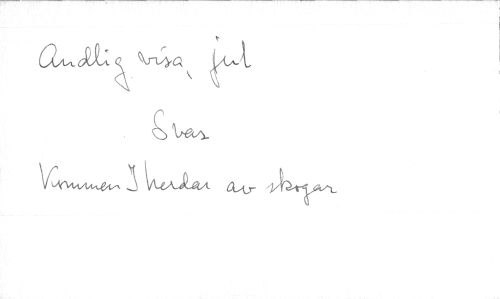 Andlig visa, jul
Svas
Kommen I herdar av skogar